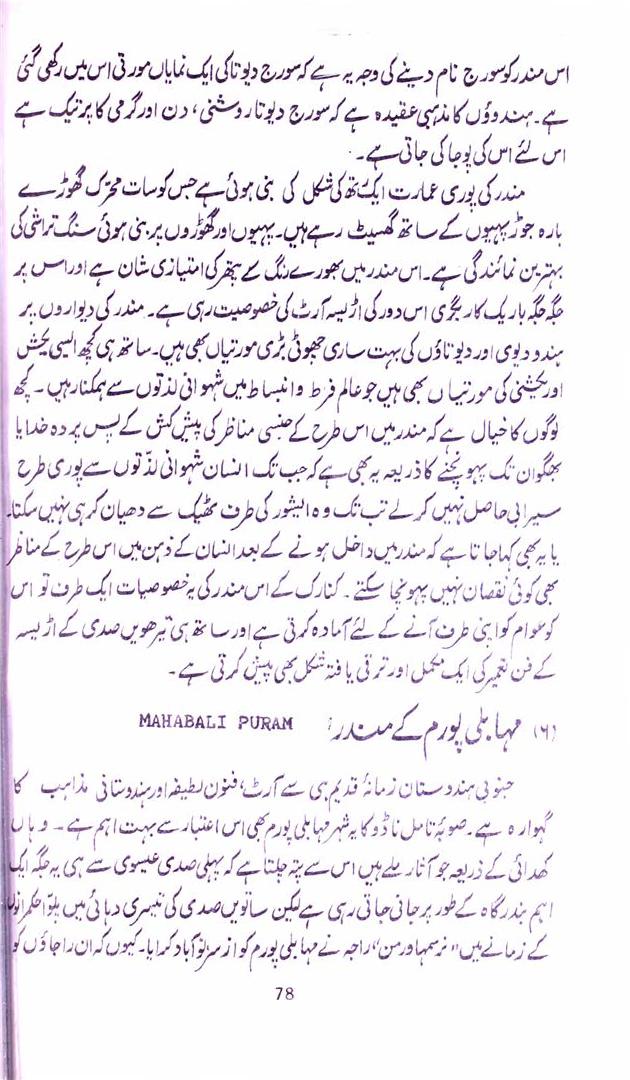 اس مندر کو سورج نام دینے کی وجہ یہ ہے کہ سورج دیوتا کی ایک نمایاں مورتی اس میں رکھی گئی
ہے۔ ہندوؤں کا مذہبی عقیدہ ہے کہ سورج دیوتا روشنی، دن اور گرمی کا پرتیک ہے
اس لئے اس کی پوجا کی جاتی ہے۔
مندر کی پوری عمارت ایک رتھ کی شکل کی بنی ہوئی ہے جس کو سات متحرک گھوڑے
بارہ جوڑ پہیوں کے ساتھ گھسیٹ رہے ہیں۔ پہیوں اور گھوڑوں پر بنی ہوئی سنگ تراشی کی
بہترین نمائندگی ہے۔ اس مندر میں بھورے رنگ کے پتھر کی امتیازی شان ہے اور اس پر
جگہ جگہ باریک کاریگری اس دور کی اڑیسہ آرٹ کی خصوصیت رہی ہے۔ مندر کی دیواروں پر
ہندو دیوی اور دیوتاؤں کی بہت ساری چھوٹی بڑی مورتیاں بھی ہیں۔ ساتھ ہی کچھ ایسی یکش
اور یکشنی کی مورتیاں بھی ہیں جو عالم فرط و انبساط میں شہوانی لذتوں سے ہمکنار ہیں۔ کچھ
لوگوں کا خیال ہے کہ مندر میں اس طرح کے جنسی مناظر کی پیش کش کے پس پردہ خدا یا
بھگوان تک پہونچنے کا ذریعہ یہ بھی ہے کہ جب تک انسان شہوانی لذتوں سے پوری طرح
سیرابی حاصل نہیں کر لے تب تک وہ ایشور کی طرف ٹھیک سے دھیان کر ہی نہیں سکتا۔
یا یہ بھی کہا جاتا ہے کہ مندر میں داخل ہونے کے بعد انسان کے ذہن میں اس طرح کے مناظر
بھی کوئی نقصان نہیں پہونچا سکتے۔ کنارک کے اس مندر کی یہ خصوصیات ایک طرف تو اس
کو عوام کو اپنی طرف آنے کے لئے آمادہ کرتی ہے اور ساتھ ہی تیرھویں صدی کے اڑیسہ
کے فن تعمیر کی ایک مکمل اور ترقی یافتہ شکل بھی پیش کرتی ہے۔
(۶) مہابلی پورم کے مندر: MAHABALI PURAM
جنوبی ہندوستان زمانۂ قدیم ہی سے آرٹ، فنون لطیفہ اور ہندوستانی مذاہب کا
گہوارہ ہے۔ صوبۂ تامل ناڈو کا یہ شہر مہابلی پورم بھی اس اعتبار سے بہت اہم ہے۔ وہاں
کھدائی کے ذریعہ جو آثار ملے ہیں اس سے پتہ چلتا ہے کہ پہلی صدی عیسوی سے ہی یہ جگہ ایک
اہم بندرگاہ کے طور پر جانی جاتی رہی ہے لیکن ساتویں صدی کی تیسری دہائی میں پلوا حکمرانوں
کے زمانے میں "نرسمہا ورمن" راجہ نے مہابلی پورم کو از سر نو آباد کرایا۔ کیوں کہ ان راجاؤں کو
78